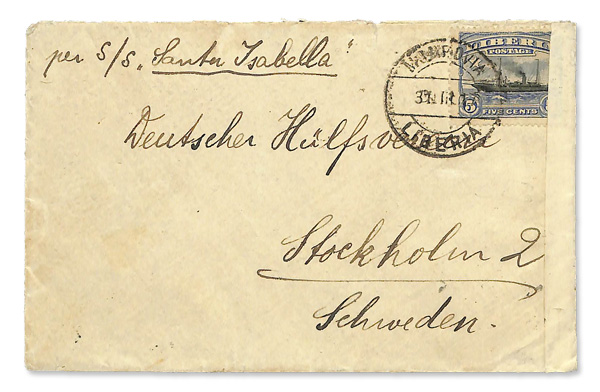 per S/s „Santa Isabella"
LIBERIA
POSTAGE
5
FIVE CENTS
MONROVIA
LIBERIA
Deutscher Hülfsverein
Stockholm 2
Schweden.